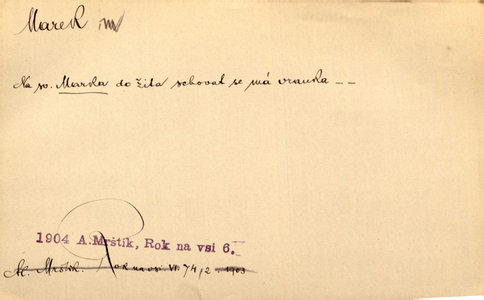 Marek m
Na sv. Marka do žita schovat se má vranka – –
1904 A. Mrštík, Rok na vsi 6.
Al. Mrštík. Rok na vsi VI. 74/2 1903